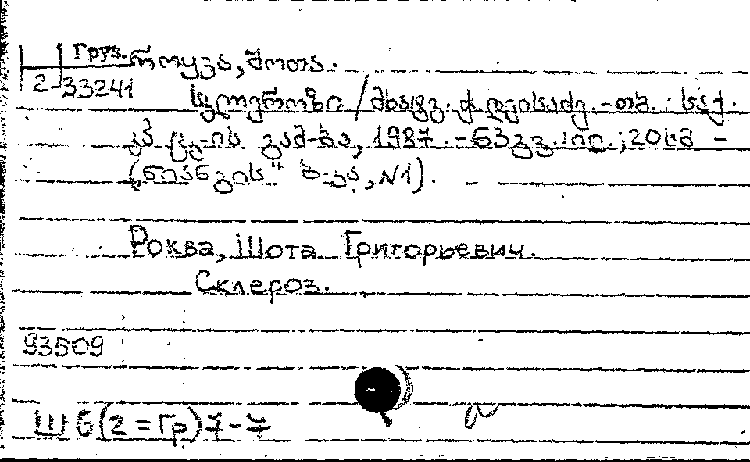 Груз.
როყვა, შოთა.
2-33241
სკლეროზი / მხატვ. ქ. დეისაძე. - თბ. : საქ.
კპ ცკ-ის გამ-ბა, 1987. - 63გვ. ილ.; 20სმ -
(„ნიანგის“ ბ-კა, N1).
Роква, Шота Григорьевич.
Склероз.
93509
Ш6(2=Гр)7-7